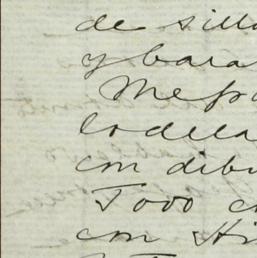 de silla
y bara
Me pa
lo dela
con dibu
Todo c
con Hi